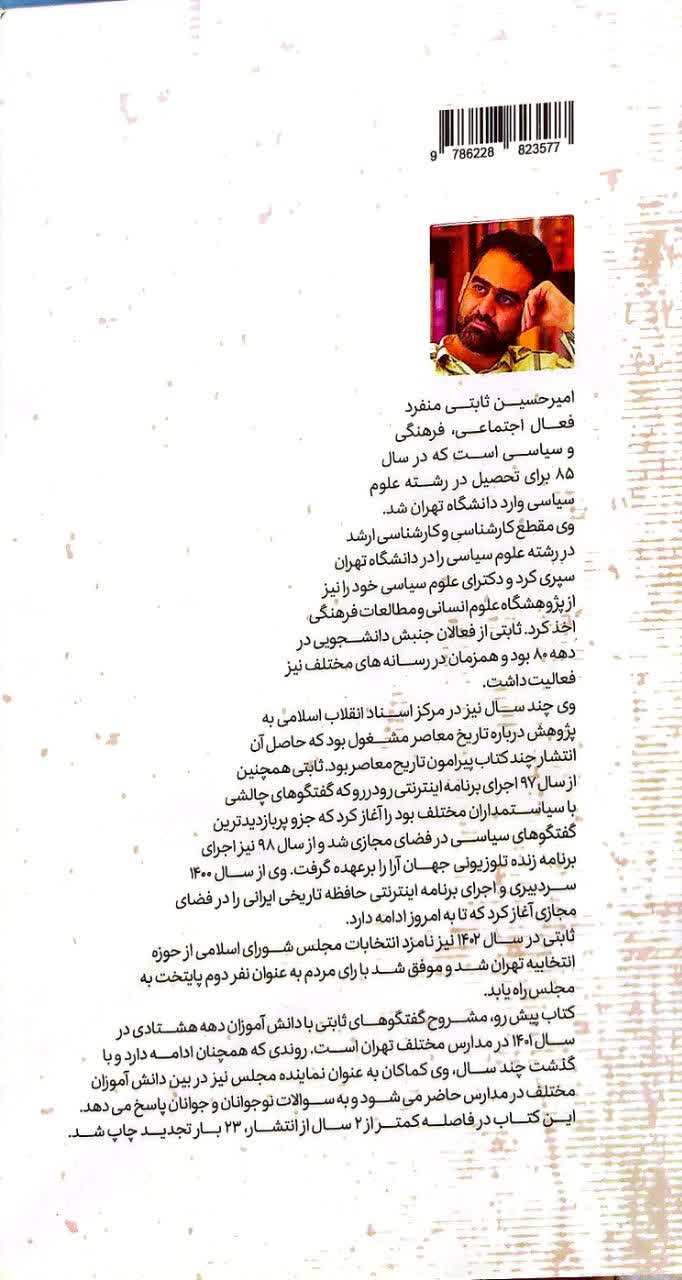 9 786228 823577
امیرحسین ثابتی منفرد
فعال اجتماعی، فرهنگی
و سیاسی است که در سال
۸۵ برای تحصیل در رشته علوم
سیاسی وارد دانشگاه تهران شد.
وی مقطع کارشناسی و کارشناسی ارشد
در رشته علوم سیاسی را در دانشگاه تهران
سپری کرد و دکترای علوم سیاسی خود را نیز
از پژوهشگاه علوم انسانی و مطالعات فرهنگی
اخذ کرد. ثابتی از فعالان جنبش دانشجویی در
دهه ۸۰ بود و همزمان در رسانه های مختلف نیز
فعالیت داشت.
وی چند سال نیز در مرکز اسناد انقلاب اسلامی به
پژوهش درباره تاریخ معاصر مشغول بود که حاصل آن
انتشار چند کتاب پیرامون تاریخ معاصر بود. ثابتی همچنین
از سال ۹۷ اجرای برنامه اینترنتی رودررو که گفتگوهای چالشی
با سیاستمداران مختلف بود را آغاز کرد که جزو پربازدیدترین
گفتگوهای سیاسی در فضای مجازی شد و از سال ۹۸ نیز اجرای
برنامه زنده تلوزیونی جهان آرا را برعهده گرفت. وی از سال ۱۴۰۰
سردبیری و اجرای برنامه اینترنتی حافظه تاریخی ایرانی را در فضای
مجازی آغاز کرد که تا به امروز ادامه دارد.
ثابتی در سال ۱۴۰۲ نیز نامزد انتخابات مجلس شورای اسلامی از حوزه
انتخابیه تهران شد و موفق شد با رای مردم به عنوان نفر دوم پایتخت به
مجلس راه یابد.
کتاب پیش رو، مشروح گفتگوهای ثابتی با دانش آموزان دهه هشتادی در
سال ۱۴۰۱ در مدارس مختلف تهران است. روندی که همچنان ادامه دارد و با
گذشت چند سال، وی کماکان به عنوان نماینده مجلس نیز در بین دانش آموزان
مختلف در مدارس حاضر می شود و به سوالات نوجوانان و جوانان پاسخ می دهد.
این کتاب در فاصله کمتر از ۲ سال از انتشار، ۲۳ بار تجدید چاپ شد.